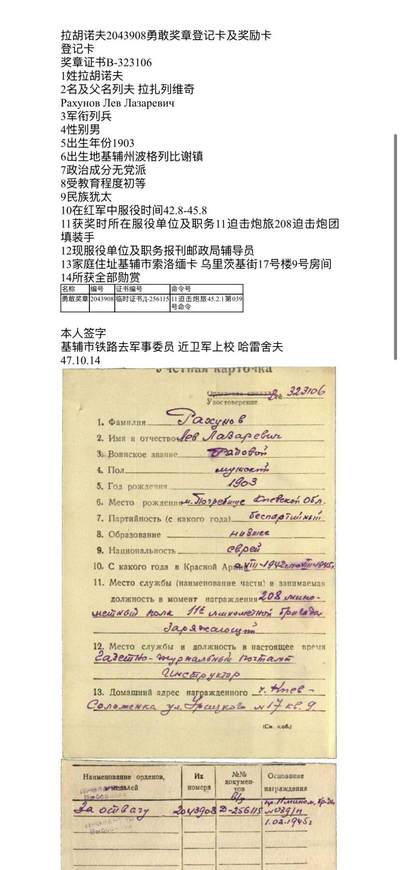 拉胡诺夫2043908勇敢奖章登记卡及奖励卡
登记卡
奖章证书B-323106
1姓拉胡诺夫
2名及父名列夫 拉扎列维奇
Рахунов Лев Лазаревич
3军衔列兵
4性别男
5出生年份1903
6出生地基辅州波格列比谢镇
7政治成分无党派
8受教育程度初等
9民族犹太
10在红军中服役时间42.8-45.8
11获奖时所在服役单位及职务11迫击炮旅208迫击炮团填装手
12现服役单位及职务报刊邮政局辅导员
13家庭住址基辅市索洛缅卡 乌里茨基街17号楼9号房间
14所获全部勋赏
名称 编号 证书编号 命令号
勇敢奖章 2043908 临时证书Д-256115 11迫击炮旅45.2.1第039号命令
本人签字
基辅市铁路去军事委员 近卫军上校 哈雷舍夫
47.10.14
Учетная карточка
№ 323106
Удостоверение
1. Фамилия Рахунов
2. Имя и отчество Лев Лазаревич
3. Воинское звание Рядовой
4. Пол мужской
5. Год рождения 1903
6. Место рождения м. Погребище Киевской Обл.
7. Партийность (с какого года) беспартийный
8. Образование низшее
9. Национальность еврей
10. С какого года в Красной Арм
11. Место службы (наименование части) и занимаемая
должность в момент награждения 208 мино-
метный полк 11й минометной бригады
Заряжающий
12. Место службы и должность в настоящее время
Газетно-журнальный почтамт
Инструктор
13. Домашний адрес награжденного г. Киев-
Соломенка ул. Урицкого № 17 кв. 9.
(См. на об.)
Наименование орденов, медалей Их номера №№ документов Основание награждения
За отвагу 2043908 Д-256115 № 039/н
1.02.1945г